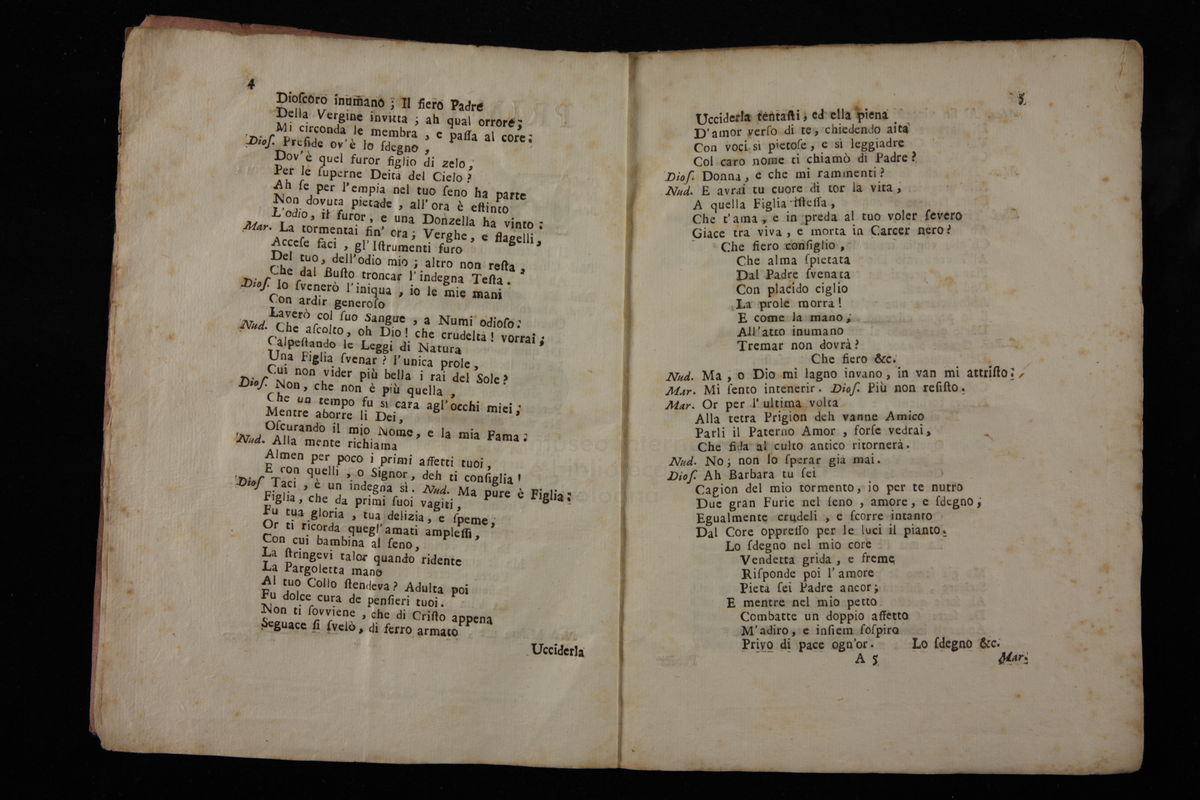 4
Dioſcoro inumano ; Il fiero Padre
Della Vergine invitta ; ah qual orrore ;
Mi circonda le membra , e paſſa al core :
Dioſ. Preſide ov'è lo ſdegno ,
Dov'è quel furor figlio di zelo ,
Per le ſuperne Deità del Cielo ?
Ah ſe per l'empia nel tuo ſeno ha parte
Non dovuta pietade , all'ora è eſtinto
L'odio , il furor , e una Donzella ha vinto :
Mar. La tormentai fin' ora ; Verghe , e flagelli ,
Acceſe faci , gl'Iſtrumenti furo
Del tuo , dell'odio mio ; altro non reſta ,
Che dal Buſto troncar l'indegna Teſta .
Dioſ. Io ſvenerò l'iniqua , io le mie mani
Con ardir generoſo
Laverò col ſuo Sangue , a Numi odioſo :
Nud. Che aſcolto , oh Dio ! che crudeltà ! vorrai ;
Calpeſtando le Leggi di Natura
Una Figlia ſvenar ? l'unica prole ,
Cui non vider più bella i rai del Sole ?
Dioſ. Non , che non è più quella ,
Che un tempo fu sì cara agl'occhi miei ;
Mentre aborre li Dei ,
Oſcurando il mio Nome , e la mia Fama :
Nud. Alla mente richiama
Almen per poco i primi affetti tuoi ,
E con quelli , o Signor , deh ti conſiglia !
Dioſ Taci , è un indegna sì . Nud. Ma pure è Figlia :
Figlia , che da primi ſuoi vagiti ,
Fu tua gloria , tua delizia , e ſpeme ,
Or ti ricorda quegl'amati ampleſſi ,
Con cui bambina al ſeno ,
La ſtringevi talor quando ridente
La Pargoletta mano
Al tuo Collo ſtendeva ? Adulta poi
Fu dolce cura de penſieri tuoi .
Non ti ſovviene , che di Criſto appena
Seguace ſi ſvelò , di ferro armato
Ucciderla
5
Ucciderla tentaſti , ed ella piena
D'amor verſo di te , chiedendo aita
Con voci sì pietoſe , e sì leggiadre
Col caro nome ti chiamò di Padre ?
Dioſ. Donna , e che mi rammenti ?
Nud. E avrai tu cuore di tor la vita ,
A quella Figlia iſteſſa ,
Che t'ama , e in preda al tuo voler ſevero
Giace tra viva , e morta in Carcer nero ?
Che fiero conſiglio ,
Che alma ſpietata
Dal Padre ſvenata
Con placido ciglio
La prole morrà !
E come la mano ;
All'atto inumano
Tremar non dovrà ?
Che fiero &c.
Nud. Ma , o Dio mi lagno invano , in van mi attriſto :
Mar. Mi ſento intenerir . Dioſ. Più non reſiſto .
Mar. Or per l'ultima volta
Alla tetra Prigion deh vanne Amico
Parli il Paterno Amor , forſe vedrai ,
Che fida al culto antico ritornerà .
Nud. No ; non lo ſperar già mai .
Dioſ. Ah Barbara tu ſei
Cagion del mio tormento , io per te nutro
Due gran Furie nel ſeno , amore , e ſdegno ;
Egualmente crudeli , e ſcorre intanto
Dal Core oppreſſo per le luci il pianto .
Lo ſdegno nel mio core
Vendetta grida , e freme
Riſponde poi l'amore
Pietà ſei Padre ancor ;
E mentre nel mio petto
Combatte un doppio affetto
M'adiro , e inſiem ſoſpiro
Privo di pace ogn'or . Lo ſdegno &c.
A 5 Mar.